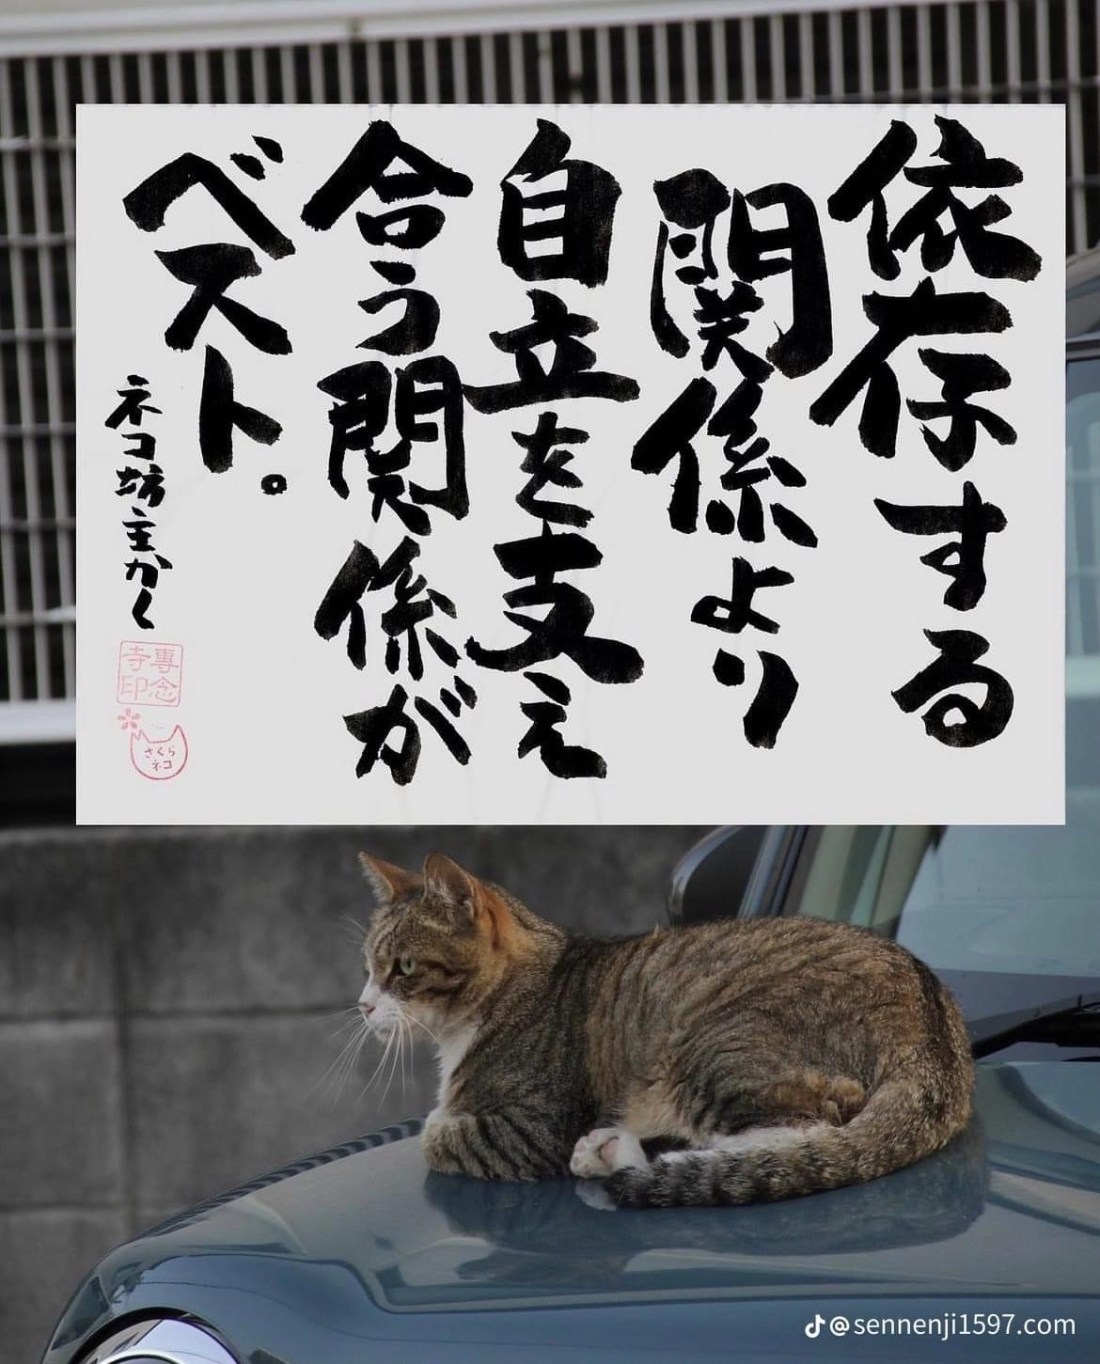 依存する
関係より
自立を支え
合う関係が
ベスト。
ネコ坊主かく
專念
寺印
さくら
ネコ
@sennenji1597.com